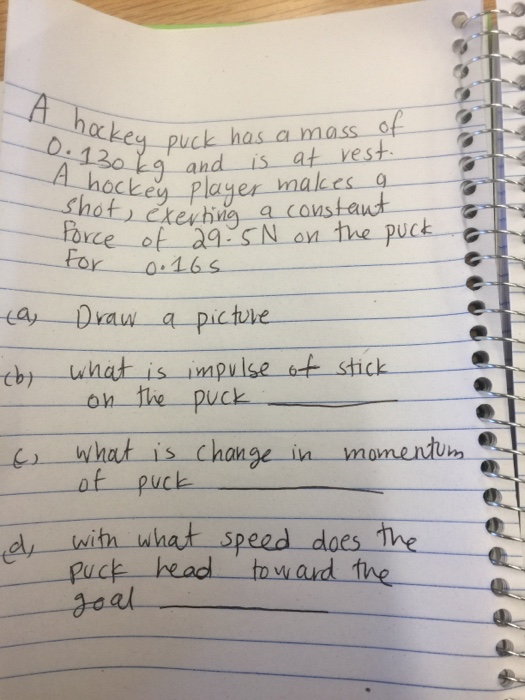 A hockey puck has a mass of
0.130 kg and is at rest.
A hockey player makes a
shot, exerting a constant
force of 29.5N on the puck
for 0.16s
(a) Draw a picture
(b) what is impulse of stick
on the puck
c) what is change in momentum
of puck
(d) with what speed does the
puck head toward the
goal